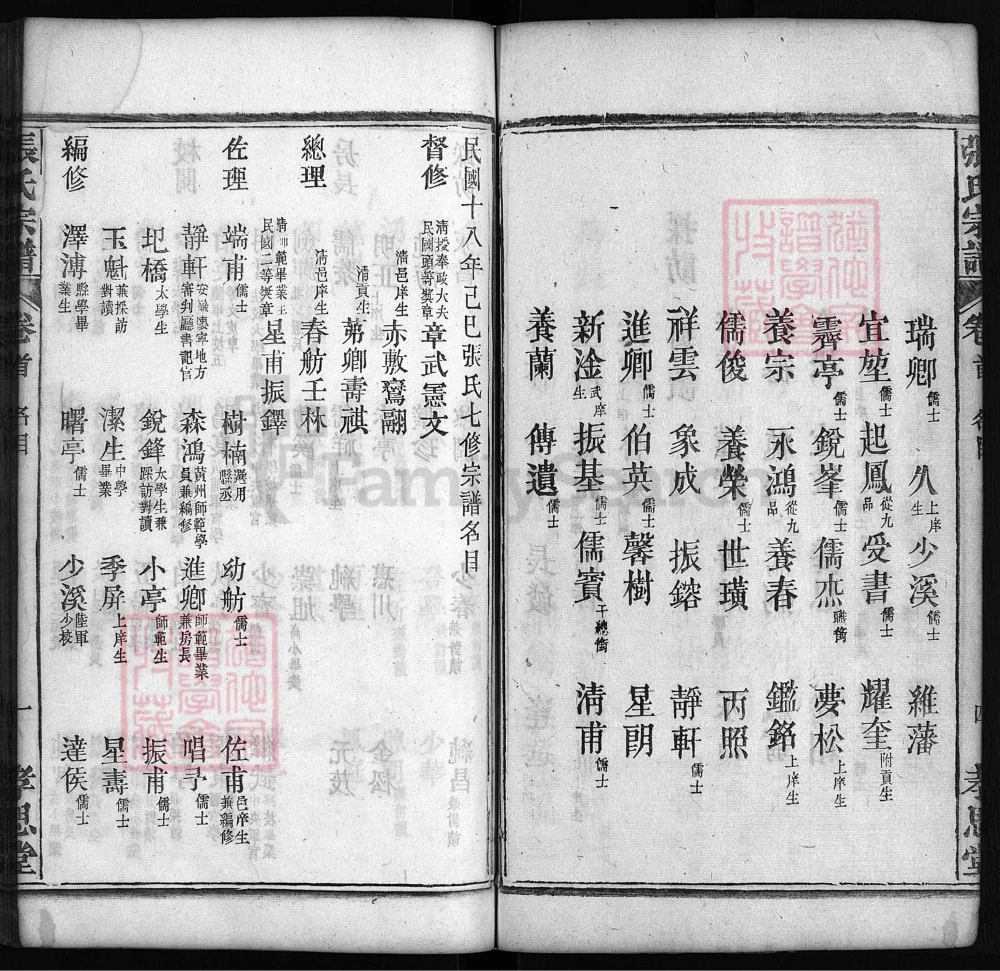 張氏宗譜 卷首 名目 四 孝思堂
瑞卿儒士 久上庠生 少溪儒士 維藩
宜堃儒士 起鳳從九品 受書儒士 耀奎附貢生
霽亭儒士 銳峯儒士 儒杰職銜 夢松上庠生
養宗儒士 永鴻從九品 養春 鑑銘上庠生
儒俊 養榮儒士 世璜 丙照
祥雲 象成 振鎔 靜軒儒士
進卿儒士 伯英儒士 馨樹 星朗
新淦武庠生 振基儒士 儒賓千總銜 清甫儒士
養蘭 傳遺儒士
民國十八年己巳張氏七修宗譜名目
督修 清授奉政大夫民國頭等獎章 章武憲文
清邑庠生 赤敷鶱翮
清貢生 茀卿壽祺
總理 清邑庠生 春舫壬林
清師範畢業民國二等獎章 星甫振鐸
佐理 端甫儒士 樹楠選用縣丞 幼舫儒士 佐甫邑庠生兼編修
靜軒安徽懷寧地方審判廳書記官 森鴻黃州師範學員兼編修 進卿師範畢業兼房長 唱予儒士
圯橋太學生 銳鋒太學生兼踩訪對讀 小亭師範生 振甫儒士
玉魁兼採訪對讀 潔生中學畢業 季屏上庠生 星壽儒士
編修 澤溥縣學畢業生 曙亭儒士 少溪陸軍少校 達侯儒士
張氏宗譜 卷首 名目 一 孝思堂
FamilySearch